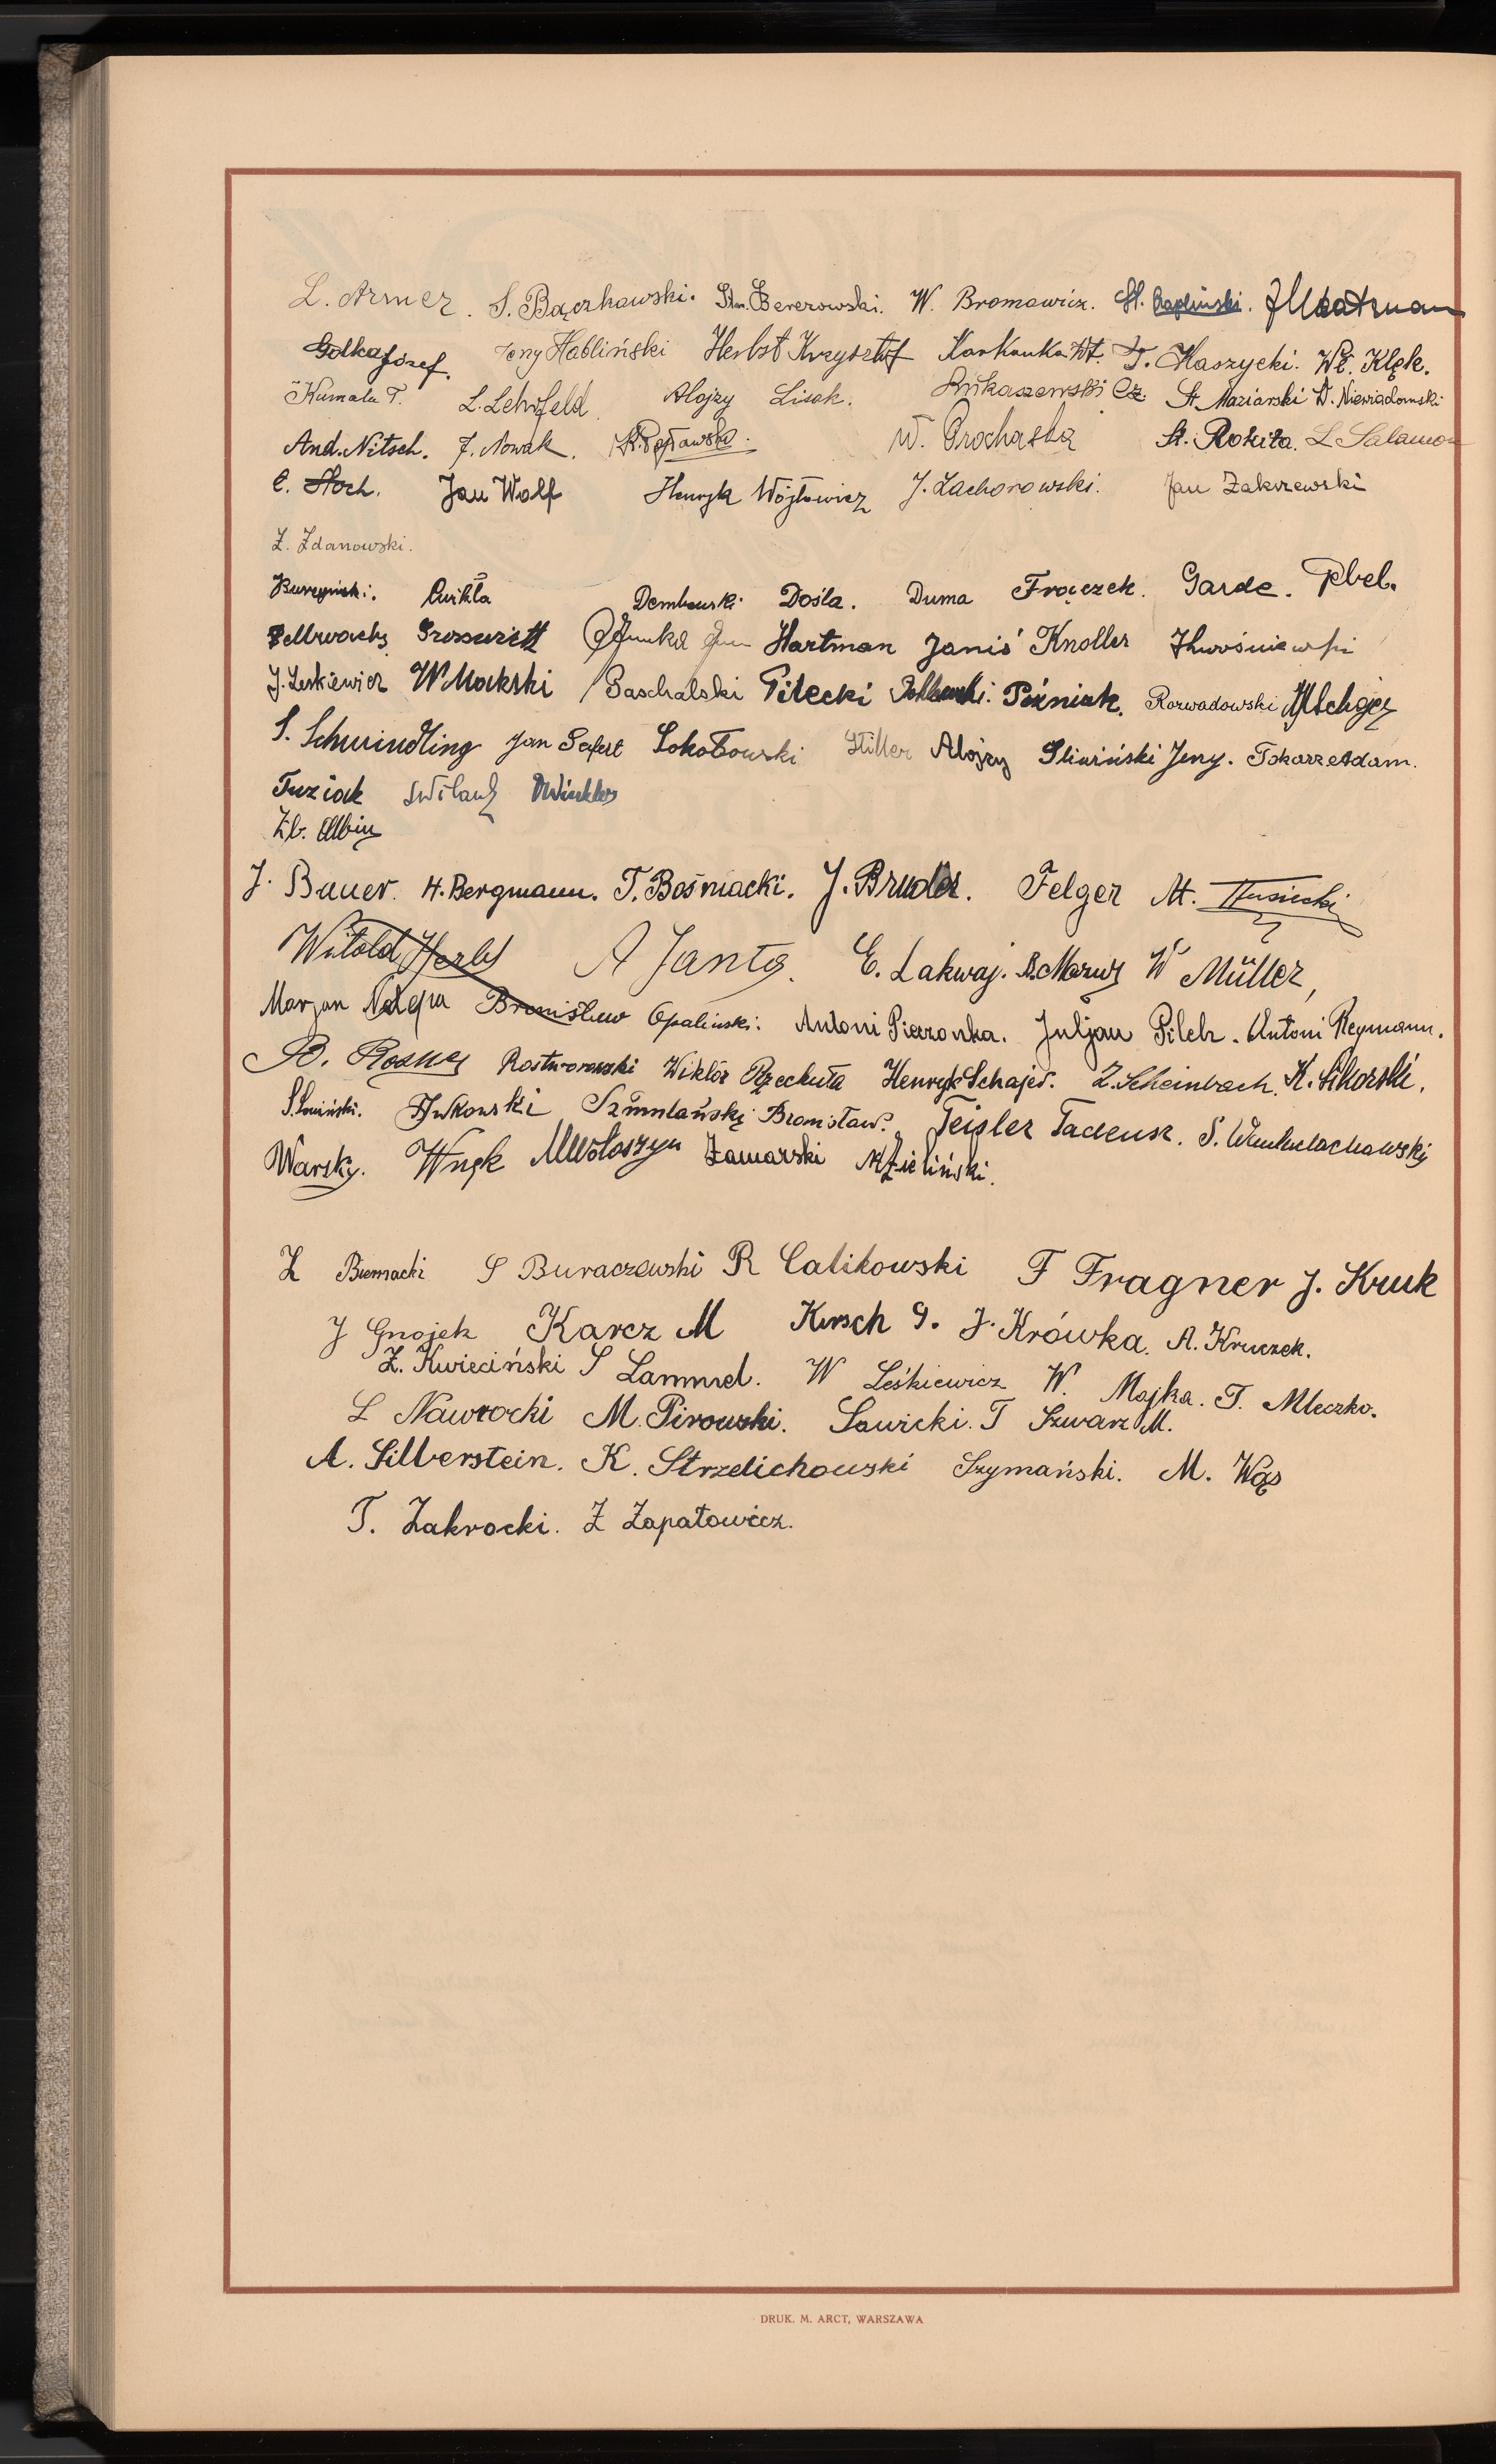 L. Armer. S. Bączkowski. Stan. Berezowski. W. Bromowicz. St. Czapliński.
Golka Józef. Jerzy Habliński Herbst Krzysztof Karkanka Wł. T. Kaszycki. Wł. Klęk.
Kumala T. L. Lehrfeld. Alojzy Lisak. Łukaszewski Cz. St. Maziarski W. Niewiadomski
And. Nitsch. F. Nowak. W. Prochaska St. Rokita. L Salamon
E. Stoch. Jan Wolf Henryk Wójtowicz J. Zachorowski. Jan Zakrzewski
Z. Zdanowski.
Burzyński. Ćwikła Dembowski Dośla. Duma Frączek. Garde. Gbel.
Hartman Janiś Knoller
J. Leskiewicz W Mokski Paschalski Pitecki Poźniak. Rozwadowski
S. Schwindling Jan Sefert Sokołowski Stiller Alojzy Śliwiński Jerzy. Tokarz Adam.
Tuziak Winkler
Zb. Albin
J. Bauer. H. Bergmann. T. Bośniacki. J. Bruder. Felger M. Husiecki
Witold Herbst A Janta. E. Lakwaj. W Müller,
Marjan Bronisław Opaliński. Antoni Pierzonka. Juljan Pilch. Antoni Reymann.
B. Rosner Rostworowski Wiktór Rzechuła Henryk Schajer. Z. Scheinbach. K. Sikorski.
Bronisław. Teisler Tadeusz. S.
Warsky. Wnęk M Wołoszyn Zamorski M Zieliński.
Z Biernacki S Buraczewski R Calikowski F Fragner J. Kruk
J Gnojek Karcz M Kirsch G. J. Krówka. A. Kruczek.
Z. Kwieciński S Lammel. W Leśkiewicz W. Majka. T. Mleczko.
L Nawrocki M. Pirowski. Sawicki. T Szwarz M.
A. Silberstein. K. Strzelichowski Szymański. M. Wąs
T. Zakrocki. Z Zapałowicz.
DRUK. M. ARCT, WARSZAWA